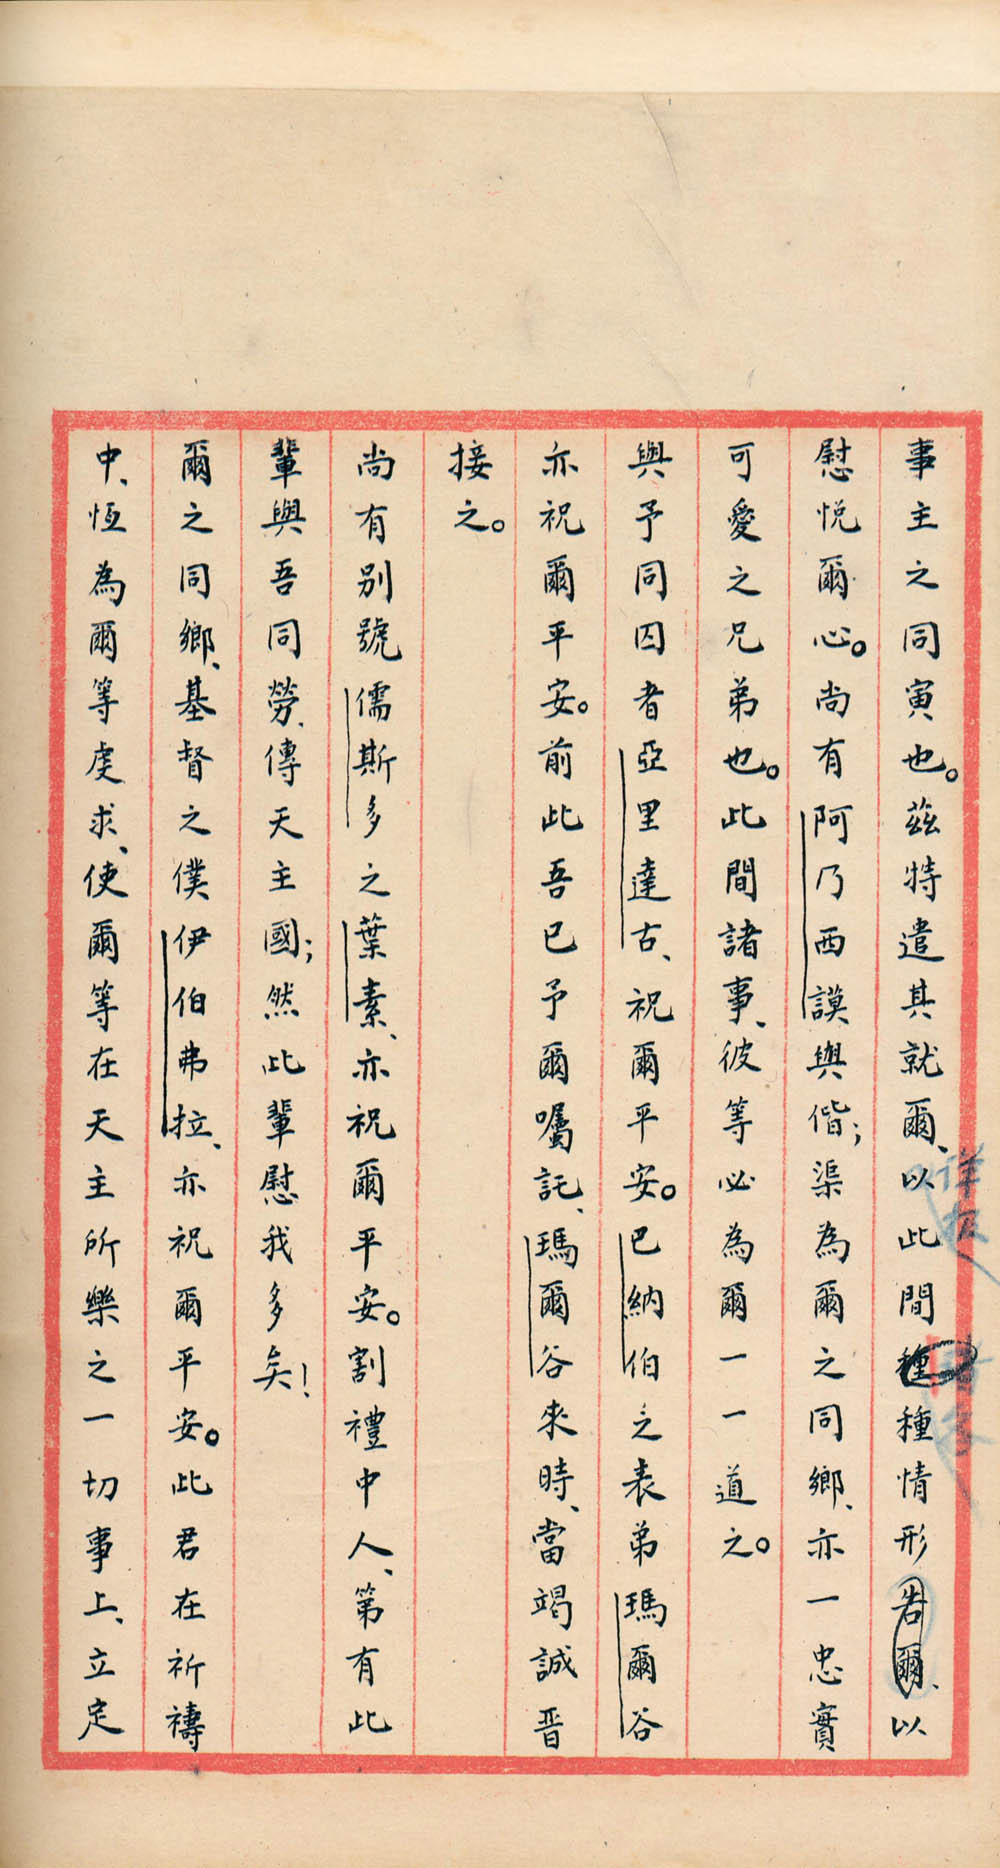 事主之同寅也。茲特遣其就爾、以此間種種情形告爾、以
慰悅爾心。尚有阿乃西謨與偕；渠為爾之同鄉、亦一忠實
可愛之兄弟也。此間諸事、彼等必為爾一一道之。
與予同囚者亞里達古、祝爾平安。巴納伯之表弟瑪爾谷
亦祝爾平安。前此吾已予爾囑託、瑪爾谷來時、當竭誠晉
接之。
尚有別號儒斯多之葉素、亦祝爾平安。割禮中人、第有此
輩與吾同勞、傳天主國；然此輩慰我多矣！
爾之同鄉、基督之僕伊伯弗拉、亦祝爾平安。此君在祈禱
中、恆為爾等虔求、使爾等在天主所樂之一切事上、立定